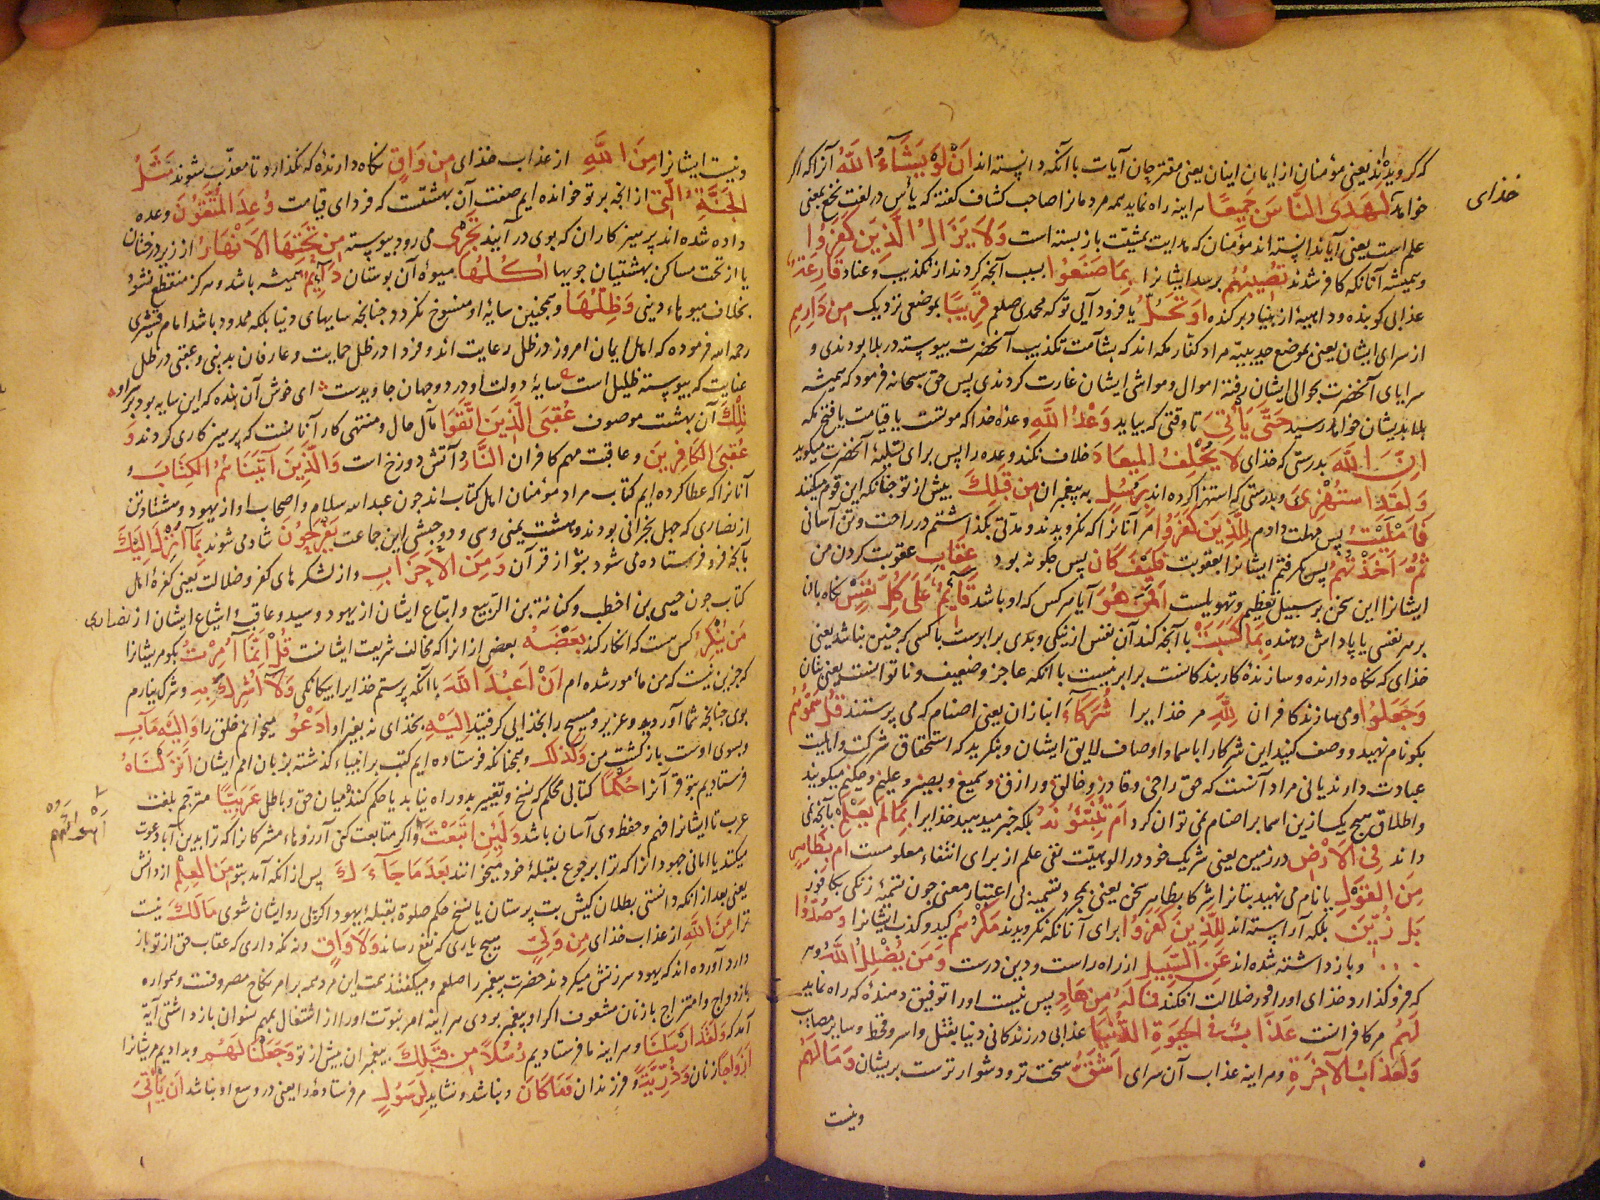 که گرویدند یعنی مؤمنان از ایمان اینان یعنی مقترحان آیات با آنکه دانسته اند اَنْ لَوْ یَشَآءُ اللَّهُ آنرا که اگر
خدای
خواهد لَهَدَی النَّاسَ جَمِیعًا هر اینه راه نماید همه مردمانرا صاحب کشاف گفته که یأس در لغت نخع بمعنی
علم است یعنی آیا ندانسته اند مؤمنان که هدایت بمشیّت باز بسته است وَلَا یَزَالُ الَّذِینَ کَفَرُوا
و همیشه آنانکه کافر شدند تُصِیبُهُمْ برسد ایشانرا بِمَا صَنَعُوا بسبب آنچه کردند از تکذیب و عناد قَارِعَةٌ
عذابی کوبنده و داهیهٔ از بنیاد برکنده اَوْ تَحُلُّ یا فرود آیی تو که محمدی صلعم قَرِیبًا بموضعی نزدیک مِنْ دَارِهِمْ
از سرای ایشان یعنی بموضع حدیبیّه مراد کفّار مکه اند که بشآمت تکذیب آنحضرت پیوسته در بلا بودندی و
سرایای آنحضرت بحوالی ایشان رفته اموال و مواشی ایشان غارت کردندی پس حق سبحانه فرمود که همیشه
بلا بدیشان خواهد رسید حَتَّی یَأْتِیَ تا وقتی که بیاید وَعْدُ اللَّهِ وعدهٔ خدا که موتست یا قیامت یا فتح مکه
اِنَّ اللَّهَ بدرستی که خدای لَا یُخْلِفُ الْمِیعَادَ خلاف نکند وعده را پس برای تسلیهٔ آنحضرت میگوید
وَلَقَدِ اسْتُهْزِئَ و بدرستی که استهزا کرده اند بِرُسُلٍ به پیغمبران مِنْ قَبْلِکَ پیش از تو چنانکه این قوم میکنند
فَاَمْلَیْتُ پس مهلت دادم لِلَّذِینَ کَفَرُوا مر آنانرا که نگرویدند و مدّتی بگذاشتم در راحت و تن آسانی
ثُمَّ اَخَذْتُهُمْ پس بگرفتم ایشانرا بعقوبت فَکَیْفَ کَانَ پس چکونه بود عِقَابِ عقوبت کردن من
ایشانرا این سخن بر سبیل تعظیم و تهویلست اَفَمَنْ هُوَ آیا هر کس که او باشد قَآئِمٌ عَلَی کُلِّ نَفْسٍ نکاه بان
بر هر نفسی یا پاداش دهنده بِمَا کَسَبَتْ با آنچه کند آن نفس از نیکی و بدی برابرست با کسی که چنین نباشد یعنی
خدای که نکاه دارنده و سازندهٔ کار بندکانست برابر نیست با آنکه عاجز و ضعیف و ناتوانست یعنی بتان
وَجَعَلُوا و می سازند کافران لِلَّهِ مر خدایرا شُرَکَآءَ انبازان یعنی اصنام که می پرستند قُلْ سَمُّوهُمْ
بکو نام نهید و وصف کنید این شرکا را باسما و اوصاف لایق ایشان و بنکرید که استحقاق شرکت و اهلیت
عبادت دارند یا نی مراد آنست که حق را حی و قادر و خالق و رازق و سمیع و بصیر و علیم و حکیم میکویند
و اطلاق هیچ یک ازین اسما بر اصنام نمی توان کرد اَمْ تُنَبِّئُونَهُ بلکه خبر میدهید خدایرا بِمَا لَا یَعْلَمُ بآنچه نمی
داند فِی الْاَرْضِ در زمین یعنی شریک خود در الوهیّت نفی علم از برای انتفاء معلومست اَمْ بِظَاهِرٍ
مِنَ الْقَوْلِ یا نام می نهید بتانرا شرکا بظاهر سخن یعنی بمجرد تسمیه بی اعتبار معنی چون تسمیهٔ زنکی بکافور
بَلْ زُیِّنَ بلکه آراسته اند لِلَّذِینَ کَفَرُوا برای آنانکه نکرویدند مَکْرُهُمْ کید و کذب ایشانرا وَصُدُّوا
و باز داشته شده اند عَنِ السَّبِیلِ از راه راست و دین درست وَمَنْ یُضْلِلِ اللَّهُ و هر
که فرو کذارد خدای او را و در ضلالت افکند فَمَا لَهُ مِنْ هَادٍ پس نیست او را توفیق دهندهٔ که راه نماید
لَهُمْ مر کافرانست عَذَابٌ فِی الْحَیٰوةِ الدُّنْیَا عذابی در زندکانی دنیا بقتل و اسر و قحط و سایر مصایب
وَلَعَذَابُ الْآخِرَةِ و هر اینه عذاب آن سرای اَشَقُّ سخت تر و دشوار ترست بریشان وَمَا لَهُمْ
و نیست
و نیست ایشانرا مِنَ اللَّهِ از عذاب خدای مِنْ وَاقٍ نکاه دارندهٔ که نکذارد تا معذّب شوند مَثَلُ
الْجَنَّةِ الَّتِی از آنچه بر تو خوانده ایم صفت آن بهشتست که فردای قیامت وُعِدَ الْمُتَّقُونَ وعده
داده شده اند پرهیز کاران که بوی در آیند تَجْرِی می رود پیوسته مِنْ تَحْتِهَا الْاَنْهَارُ از زیر درختان
یا از تحت مساکن بهشتیان جویها اُکُلُهَا میوهٔ آن بوستان دَآئِمٌ همیشه باشد و هرکز منقطع نشود
بخلاف میوهاء دینی وَظِلُّهَا و همچنین سایهٔ او منسوخ نکردد چنانچه سایهای دنیا بلکه ممدود باشد امام قشیری
رحمه الله فرموده که اهل ایمان امروز در ظل رعایت اند و فردا در ظل حمایت و عارفان بدینی و عقبی در ظل
عنایت که پیوسته ظلیل است سایهٔ دولت او در دو جهان جاویدست ای خوش آن بنده که این سایه بود بر سر او
تِلْکَ آن بهشت موصوف عُقْبَی الَّذِینَ اتَّقَوْا مآل حال و منتهی کار آنانست که پرهیز کاری کردند وَ
عُقْبَی الْکَافِرِینَ و عاقبت مهم کافران النَّارُ آتش دوزخ است وَالَّذِینَ آتَیْنَاهُمُ الْکِتَابَ و
آنانرا که عطا کرده ایم کتاب مراد مؤمنان اهل کتاب اند چون عبد الله سلام و اصحاب او از یهود و هشتاد تن
از نصاری که چهل نجرانی بودند و هشت یمنی و سی و دو حبشی این جماعت یَفْرَحُونَ شاد می شوند بِمَآ اُنْزِلَ اِلَیْکَ
بآنچه فرو فرستاده می شود بتو از قرآن وَمِنَ الْاَحْزَابِ و از لشکرهای کفر و ضلالت یعنی کفرهٔ اهل
کتاب چون حیی بن اخطب و کنانة بن الربیع و اتباع ایشان از یهود و سید و عاقب و اشیاع ایشان از نصاری
مَنْ یُنْکِرُ کس هست که انکار کند بَعْضَهُ بعضی از انرا که مخالف شریعت ایشانست قُلْ اِنَّمَآ اُمِرْتُ بکو مر ایشانرا
که جز این نیست که من مأمور شده ام اَنْ اَعْبُدَ اللَّهَ باآنکه پرستم خدایرا بیکانکی وَلَآ اُشْرِکَ بِهِ و شرک نیارم
بوی چنانچه شما آوردید و عزیر و مسیح را بخدایی کرفتید اِلَیْهِ بخدای نه بغیر او اَدْعُو میخوانم خلق را وَاِلَیْهِ مَآبِ
و بسوی اوست بازکشت من وَکَذٰلِکَ و همچنانکه فرستاده ایم کتب بر انبیاء کذشته بزبان امم ایشان اَنْزَلْنَاهُ
فرستادیم بتو قرآنرا حُکْمًا کتابی محکم که نسخ و تغییر بدو راه نیابد یا حکم کنندهٔ میان حق و باطل عَرَبِیًّا مترجم بلغت
عرب تا ایشانرا فهم و حفظ وی آسان باشد وَلَئِنِ اتَّبَعْتَ و اکر متابعت کنی آرزوهاء مشرکانرا که ترا بدین آبا دعوت
اَهْوَآءَهُمْ
میکنند یا امانی جهودانرا که ترا برجوع بقبلهٔ خود میخوانند بَعْدَ مَا جَآءَکَ پس از آنکه آمد بتو مِنَ الْعِلْمِ از دانش
یعنی بعد از آنکه دانستی بطلان کیش بت پرستان یا نسخ حکم صلوة بقبلهٔ یهود اکر پی رو ایشان شوی مَا لَکَ نیست
ترا مِنَ اللَّهِ از عذاب خدای مِنْ وَلِیٍّ هیچ یاری که نفع رساند وَلَا وَاقٍ و نه نکه داری که عقاب حق از تو باز
دارد آورده اند که یهود سرزنش میکردند حضرت پیغمبر را صلعم و میکفتند همت این مرد همه بر امر نکاح مصروفست و همواره
بازدواج و امتزاج با زنان مشعوف اکر او پیغمبر بودی هر اینه امر نبوت او را از اشتغال بمهم نسوان باز داشتی آیة
آمد که وَلَقَدْ اَرْسَلْنَا و هر اینه ما فرستادیم رُسُلًا مِنْ قَبْلِکَ پیغمبران پیش از تو وَجَعَلْنَا لَهُمْ و بدادیم مر ایشانرا
اَزْوَاجًا زنان وَذُرِّیَّةً و فرزندان وَمَا کَانَ و نباشد و نشاید لِرَسُولٍ مر فرستادهٔ را یعنی در وسع او نباشد اَنْ یَأْتِیَ